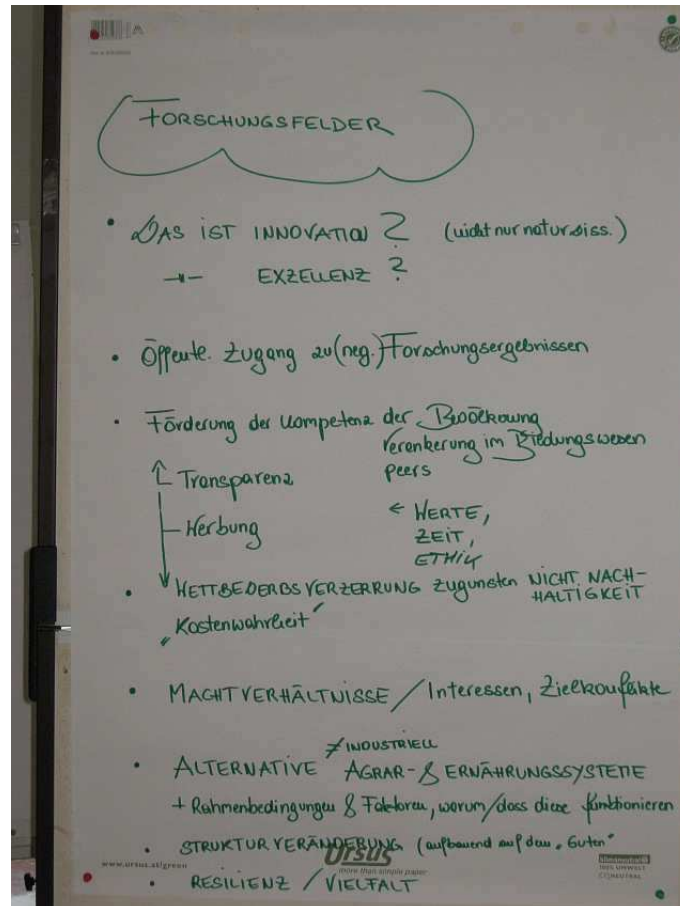 FORSCHUNGSFELDER
• WAS IST INNOVATION ? (nicht nur naturwiss.)
-"- EXZELLENZ ?
• Öffentl. Zugang zu (neg.) Forschungsergebnissen
• Förderung der Kompetenz der Bevölkerung
Verankerung im Bildungswesen
peers
Transparenz
Werbung
← WERTE,
ZEIT,
ETHIK
• WETTBEWERBSVERZERRUNG zugunsten NICHT NACH-
HALTIGKEIT
"Kostenwahrheit"
• MACHTVERHÄLTNISSE / Interessen, Zielkonflikte
≠ INDUSTRIELL
• ALTERNATIVE AGRAR- & ERNÄHRUNGSSYSTEME
+ Rahmenbedingungen & Faktoren, warum/dass diese funktionieren
• STRUKTURVERÄNDERUNG (aufbauend auf dem "Guten"
www.ursus.at/green Ursus
more than simple paper
• RESILIENZ / VIELFALT